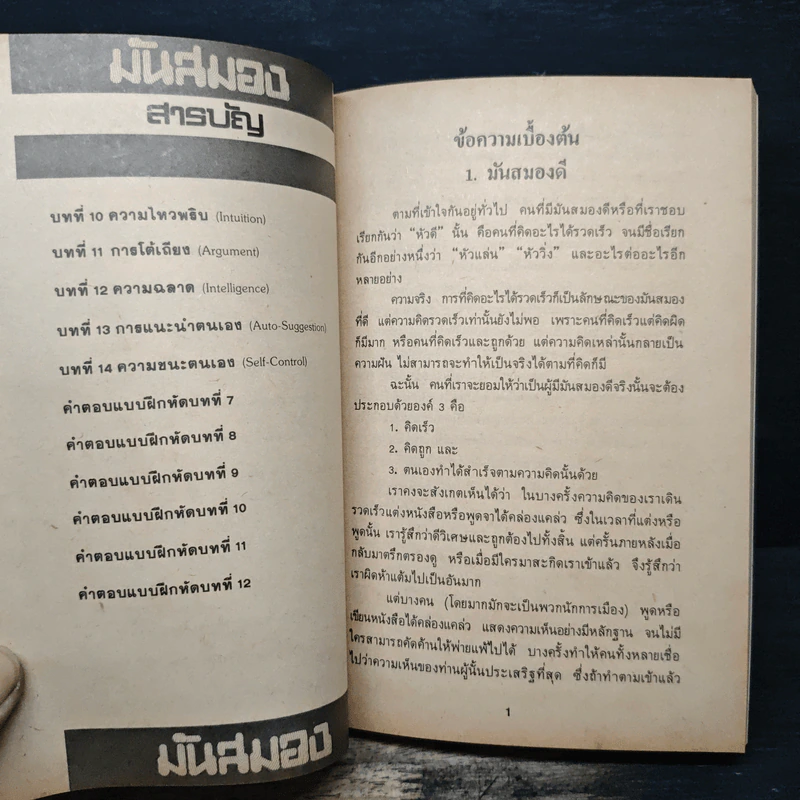 มันสมอง
สารบัญ
บทที่ 10 ความไหวพริบ (Intuition)
บทที่ 11 การโต้เถียง (Argument)
บทที่ 12 ความฉลาด (Intelligence)
บทที่ 13 การแนะนำตนเอง (Auto-Suggestion)
บทที่ 14 ความชนะตนเอง (Self-Control)
คำตอบแบบฝึกหัดบทที่ 7
คำตอบแบบฝึกหัดบทที่ 8
คำตอบแบบฝึกหัดบทที่ 9
คำตอบแบบฝึกหัดบทที่ 10
คำตอบแบบฝึกหัดบทที่ 11
คำตอบแบบฝึกหัดบทที่ 12
มันสมอง
ข้อความเบื้องต้น
1. มันสมองดี
ตามที่เข้าใจกันอยู่ทั่วไป คนที่มีมันสมองดีหรือที่เราชอบ
เรียกกันว่า “หัวดี” นั้น คือคนที่คิดอะไรได้รวดเร็ว จนมีชื่อเรียก
กันอีกอย่างหนึ่งว่า “หัวแล่น” “หัววิ่ง” และอะไรต่ออะไรอีก
หลายอย่าง
ความจริง การที่คิดอะไรได้รวดเร็วก็เป็นลักษณะของมันสมอง
ที่ดี แต่ความคิดรวดเร็วเท่านั้นยังไม่พอ เพราะคนที่คิดเร็วแต่คิดผิด
ก็มีมาก หรือคนที่คิดเร็วและถูกด้วย แต่ความคิดเหล่านั้นกลายเป็น
ความฝัน ไม่สามารถจะทำให้เป็นจริงได้ตามที่คิดก็มี
ฉะนั้น คนที่เราจะยอมให้ว่าเป็นผู้มีมันสมองดีจริงนั้นจะต้อง
ประกอบด้วยองค์ 3 คือ
1. คิดเร็ว
2. คิดถูก และ
3. ตนเองทำได้สำเร็จตามความคิดนั้นด้วย
เราคงจะสังเกตเห็นได้ว่า ในบางครั้งความคิดของเราเดิน
รวดเร็วแต่งหนังสือหรือพูดจาได้คล่องแคล่ว ซึ่งในเวลาที่แต่งหรือ
พูดนั้น เรารู้สึกว่าดีวิเศษและถูกต้องไปทั้งสิ้น แต่ครั้นภายหลังเมื่อ
กลับมาตริกตรองดู หรือเมื่อมีใครมาสะกิดเราเข้าแล้ว จึงรู้สึกว่า
เราผิดห้าแต้มไปเป็นอันมาก
แต่บางคน (โดยมากมักจะเป็นพวกนักการเมือง) พูดหรือ
เขียนหนังสือได้คล่องแคล่ว แสดงความเห็นอย่างมีหลักฐาน จนไม่มี
ใครสามารถคัดค้านให้พ่ายแพ้ไปได้ บางครั้งทำให้คนทั้งหลายเชื่อ
ไปว่าความเห็นของท่านผู้นั้นประเสริฐที่สุด ซึ่งถ้าทำตามเข้าแล้ว
1